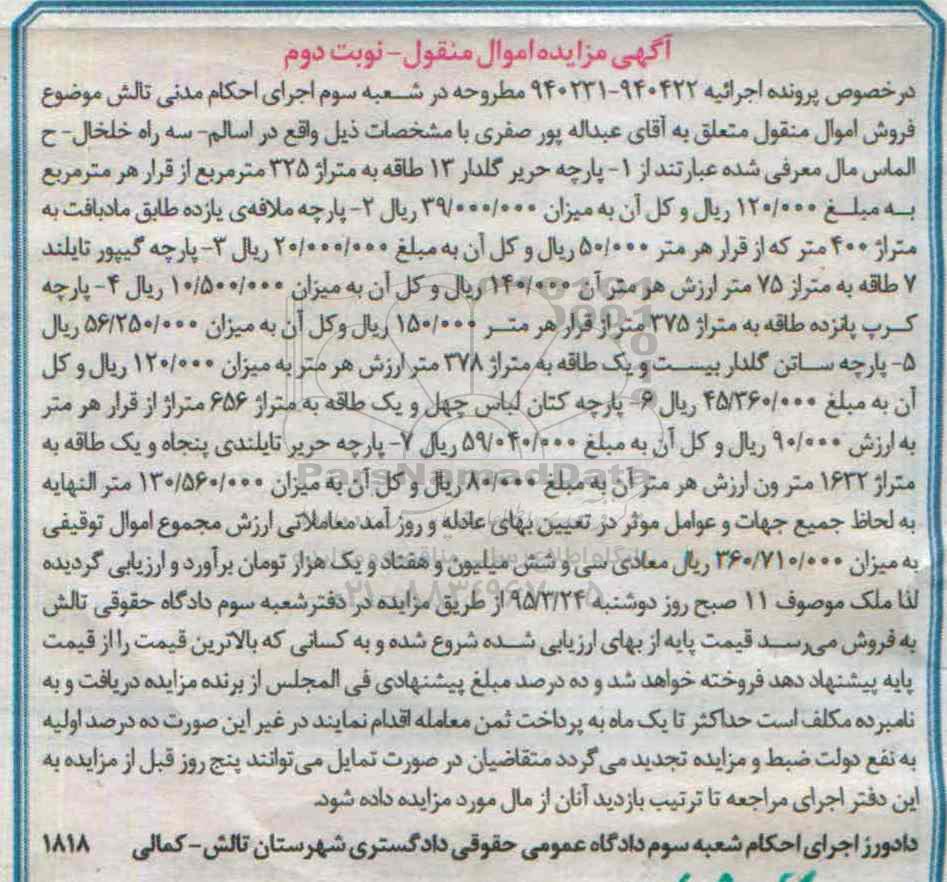 آگهی مزایده اموال منقول- نوبت دوم
درخصوص پرونده اجرائیه ۹۴۰۴۲۲-۹۴۰۲۳۱ مطروحه در شعبه سوم اجرای احکام مدنی تالش موضوع
فروش اموال منقول متعلق به آقای عبداله پور صفری با مشخصات ذیل واقع در اسالم- سه راه خلخال- ح
الماس مال معرفی شده عبارتند از ۱- پارچه حریر گلدار ۱۳ طاقه به متراژ ۳۲۵ مترمربع از قرار هر مترمربع
به مبلغ ۱۲۰/۰۰۰ ریال و کل آن به میزان ۳۹/۰۰۰/۰۰۰ ریال ۲- پارچه ملافه‌ی یازده طابق مادبافت به
متراژ ۴۰۰ متر که از قرار هر متر ۵۰/۰۰۰ ریال و کل آن به مبلغ ۲۰/۰۰۰/۰۰۰ ریال ۳- پارچه گیپور تایلند
۷ طاقه به متراز ۷۵ متر ارزش هر متر آن ۱۴۰/۰۰۰ ریال و کل آن به میزان ۱۰/۵۰۰/۰۰۰ ریال ۴- پارچه
کرپ پانزده طاقه به متراژ ۳۷۵ متر از قرار هر متر ۱۵۰/۰۰۰ ریال وکل آن به میزان ۵۶/۲۵۰/۰۰۰ ریال
۵- پارچه ساتن گلدار بیست و یک طاقه به متراژ ۳۷۸ متر ارزش هر متر به میزان ۱۲۰/۰۰۰ ریال و کل
آن به مبلغ ۴۵/۳۶۰/۰۰۰ ریال ۶- پارچه کتان لباس چهل و یک طاقه به متراژ ۶۵۶ متراژ از قرار هر متر
به ارزش ۹۰/۰۰۰ ریال و کل آن به مبلغ ۵۹/۰۴۰/۰۰۰ ریال ۷- پارچه حریر تایلندی پنجاه و یک طاقه به
متراژ ۱۶۳۲ متر ون ارزش هر متر آن به مبلغ ۸۰/۰۰۰ ریال و کل آن به میزان ۱۳۰/۵۶۰/۰۰۰ متر النهایه
به لحاظ جمیع جهات و عوامل موثر در تعیین بهای عادله و روز آمد معاملاتی ارزش مجموع اموال توقیفی
به میزان ۳۶۰/۷۱۰/۰۰۰ ریال معادی سی و شش میلیون و هفتاد و یک هزار تومان برآورد و ارزیابی گردیده
لذا ملک موصوف ۱۱ صبح روز دوشنبه ۹۵/۳/۲۴ از طریق مزایده در دفترشعبه سوم دادگاه حقوقی تالش
به فروش می‌رسد قیمت پایه از بهای ارزیابی شده شروع شده و به کسانی که بالاترین قیمت را از قیمت
پایه پیشنهاد دهد فروخته خواهد شد و ده درصد مبلغ پیشنهادی فی المجلس از برنده مزایده دریافت و به
نامبرده مکلف است حداکثر تا یک ماه به پرداخت ثمن معامله اقدام نمایند در غیر این صورت ده درصد اولیه
به نفع دولت ضبط و مزایده تجدید می گردد متقاضیان در صورت تمایل می‌توانند پنج روز قبل از مزایده به
این دفتر اجرای مراجعه تا ترتیب بازدید آنان از مال مورد مزایده داده شود.
دادورز اجرای احکام شعبه سوم دادگاه عمومی حقوقی دادگستری شهرستان تالش- کمالی ۱۸۱۸
ParsNamadData